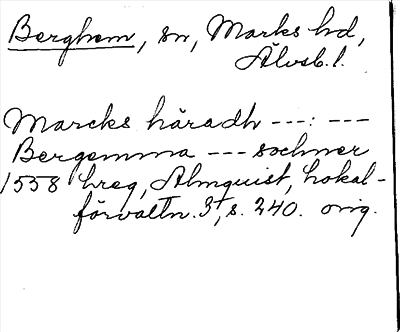 Berghem, sn, Marks hd,
Älvsb. l.
Marcks häradh ---:---
Bergemma --- sochner
1558 hreg, Almquist, Lokal-
förvaltn. 3, s. 240. orig.